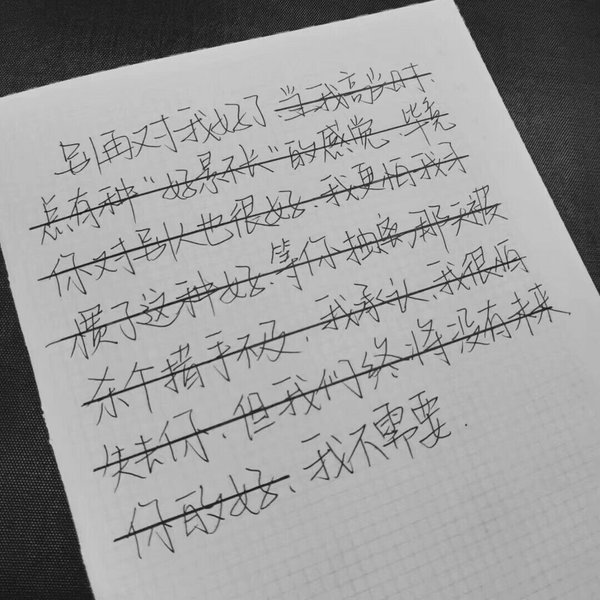 别再对我好了 当我高兴时,
总有种“好景不长”的感觉. 毕竟
你对别人也很好. 我更怕我习
惯了这种好. 等你抽离,那天被
杀个措手不及. 我承认,我很怕
失去你. 但我们终将没有未来
你的好. 我不需要.